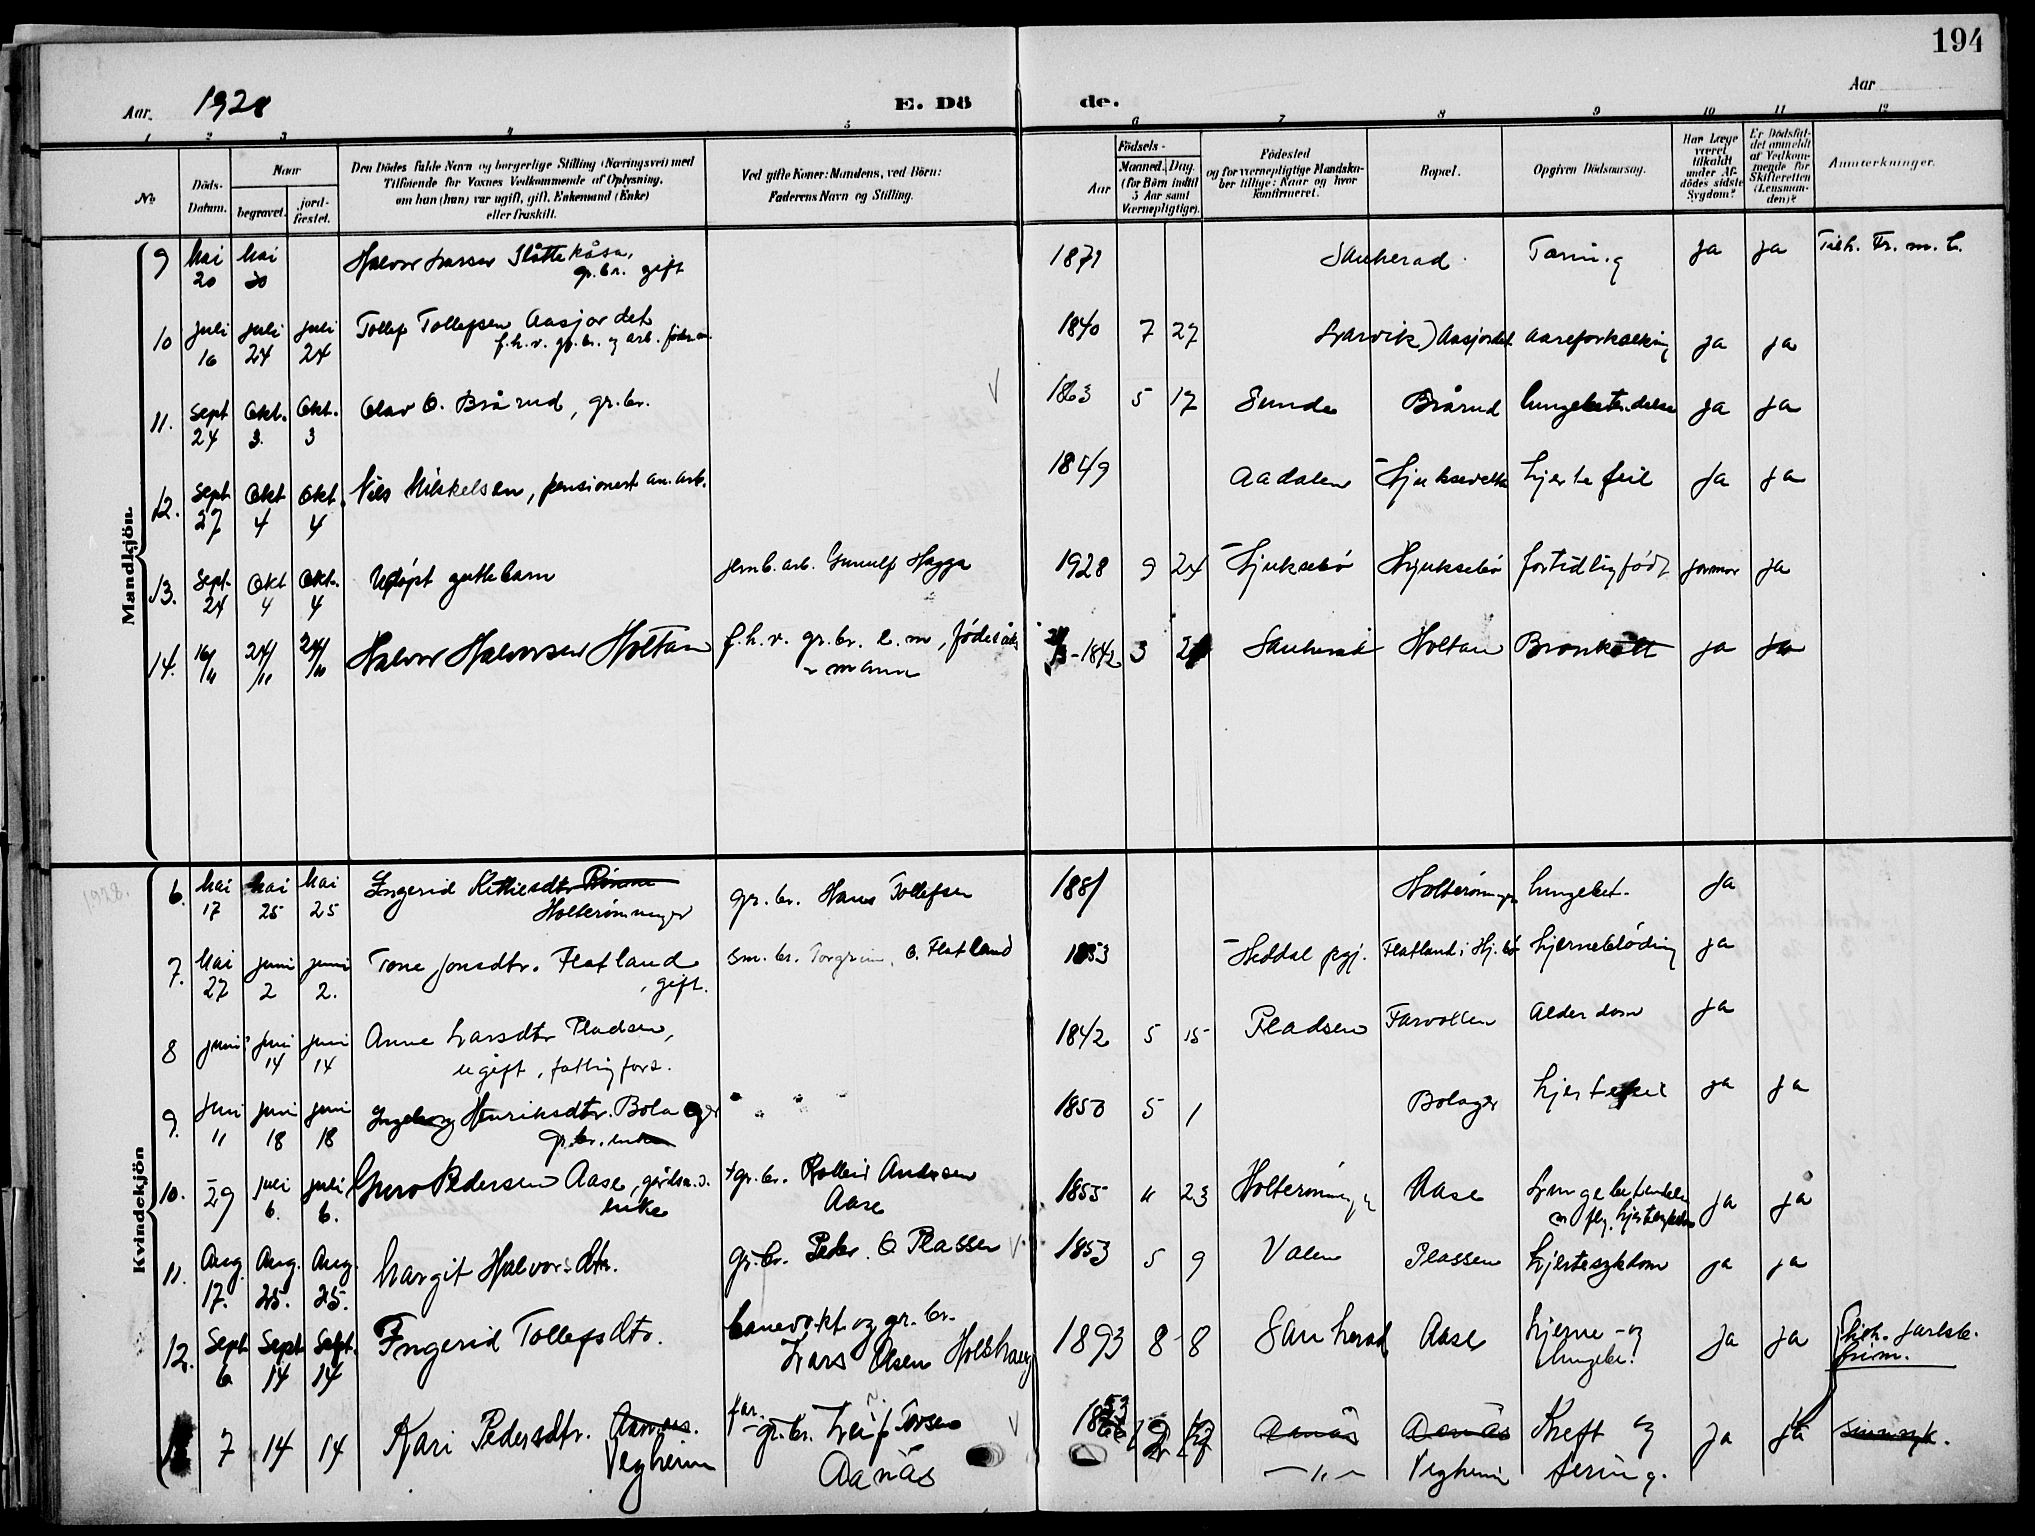 194
Aar 1928
E. Dö
de.
Aar
1 2 3 4 5 6 7 8 9 10 11 12
No
Döds-Datum.
Naar
begravet.
jord-fæstet.
Den Dödes fulde Navn og borgerlige Stilling (Næringsvei) med
Tilföiende for Voxnes Vedkommende af Oplysning,
om han (hun) var ugift, gift, Enkemand (Enke)
eller fraskilt.
Ved gifte Koner: Mandens, ved Börn:
Faderens Navn og Stilling.
Födsels-
Aar
Maaned. Dag.
(for Börn indtil
5 Aar samt
Værnepligtige).
Födested
og for værnepligtige Mandska-
ber tillige: Naar og hvor
konfirmeret.
Bopæl.
Opgiven Dödsaarsag.
Har Læge
været
tilkaldt
under Af-
dödes sidste
Sygdom?
Er Dödsfal-
det anmeldt
af Vedkom-
mende for
Skifteretten
(Lensman-
den)?
Anmærkninger.
Mandkjön.
9 Mai 20 Mai 30 Halvor Larsen Slåttekåsa, gr.br. gift 1871 Sauherad Tæring ja ja Tilh. Fr. m.
10 Juli 16 Juli 24 Juli 24 Tollef Tollefsen Aasjordet
f.h.v. gr.br. og arb. 1840 7 27 Larvik) Aasjordet aareforkalkning ja ja
11. Sept 24 Okt. 3. Okt. 3 Olav O. Brårud, gr.br. 1863 5 17 Sunde Brårud lungebetendelse ja ja
12. Sept 27 Okt 4 Okt. 4 Nils Mikkelsen, pensionert an.arb. 1849 Aadalen Hjuksevelta hjertefeil ja ja
13. Sept. 24 Okt 4 Okt. 4 Udöpt guttebarn jernb.arb. Gunulf Hagga 1928 9 24 Hjuksebö Hjuksebö fortidlig födt jormor ja
14. 16/11 24/11 24/11 Halvor Halvorsen Holtan f.h.v. gr.br. e.m,
mann 1842 3 Sauherad Holtan Bronkitt ja ja
Kvindekjön
1928.
6. Mai 17 Mai 25 Mai 25 Ingerid Kittilsdtr.
Holterönninger gr.br. Hans Tollefsen 1881 Holterönningen lungebet. ja
7. Mai 27 juni 2 juni 2. Tone Jonsdtr. Flatland
, gift. sm.br. Torgrim O. Flatland 1853 Heddal pgj. Flatland i Hj.bö hjerneblödning ja
8 juni juni 14 juni 14 Anne Larsdtr Pladsen,
ugift, fattigfors. 1842 5 15 Pladsen Farvollen Alderdom ja
9. juni 11 juni 18 juni 18 Ingeborg Henriksdtr. Bolager
gr.br. enke 1850 5 1 Bolager hjertefeil ja ja
10. 29 juli 6. juli 6. Guro Pedersen Aase,
enke gr.br. Rolleiv Andersen
Aase 1855 11 23 Holterönningen Aase Lungebetendelse
ja ja
11. Aug. 17. Aug. 25. Aug. 25. Margit Halvorsdtr. gr.br. Peder O Plassen 1853 5 9 Valen Plassen hjertesykdom ja ja
12. Sept. 6 Sept 14 Sept. 14 Ingerid Tollefsdtr. banevokt og gr.br.
Lars Olsen Holthaug 1893 8 8 Sauherad Aase hjerne- og
lungebe. ja ja Tilh. jarlsb.
frim.
7 14 14 Kari Pedersdtr. Aanäs.
Vegheim far.
gr.br. Leif Torsen
Aanäs 1853 Aanäs
-"- Aanäs
Vegheim Kreft og
tæring. ja ja sinnsyk.